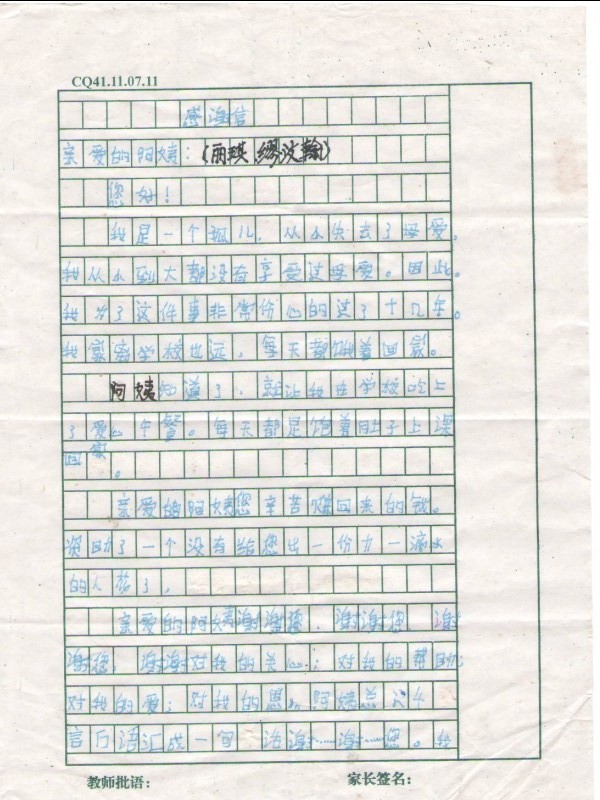 CQ41.11.07.11
感谢信
亲爱的阿姨：（丽琪、缪汶翰）
您好！
我是一个孤儿，从小失去了母爱，
我从小到大都没有享受过母爱。因此。
我为了这件事非常伤心的过了十几年。
我家离学校也远，每天都饿着回家。
阿姨知道了，就让我在学校吃上
了爱心午餐。每天都是饱着肚子上课
回家。
亲爱的阿姨您辛苦赚回来的钱。
资助了一个没有给您出一份力一滴水
的人
了，
亲爱的阿姨谢谢您，谢谢您，谢
谢您，谢谢对我的关心；对我的帮助；
对我的爱；对我的恩。阿姨
千
言万语汇成一句话谢……谢……您。我
教师批语：
家长签名：